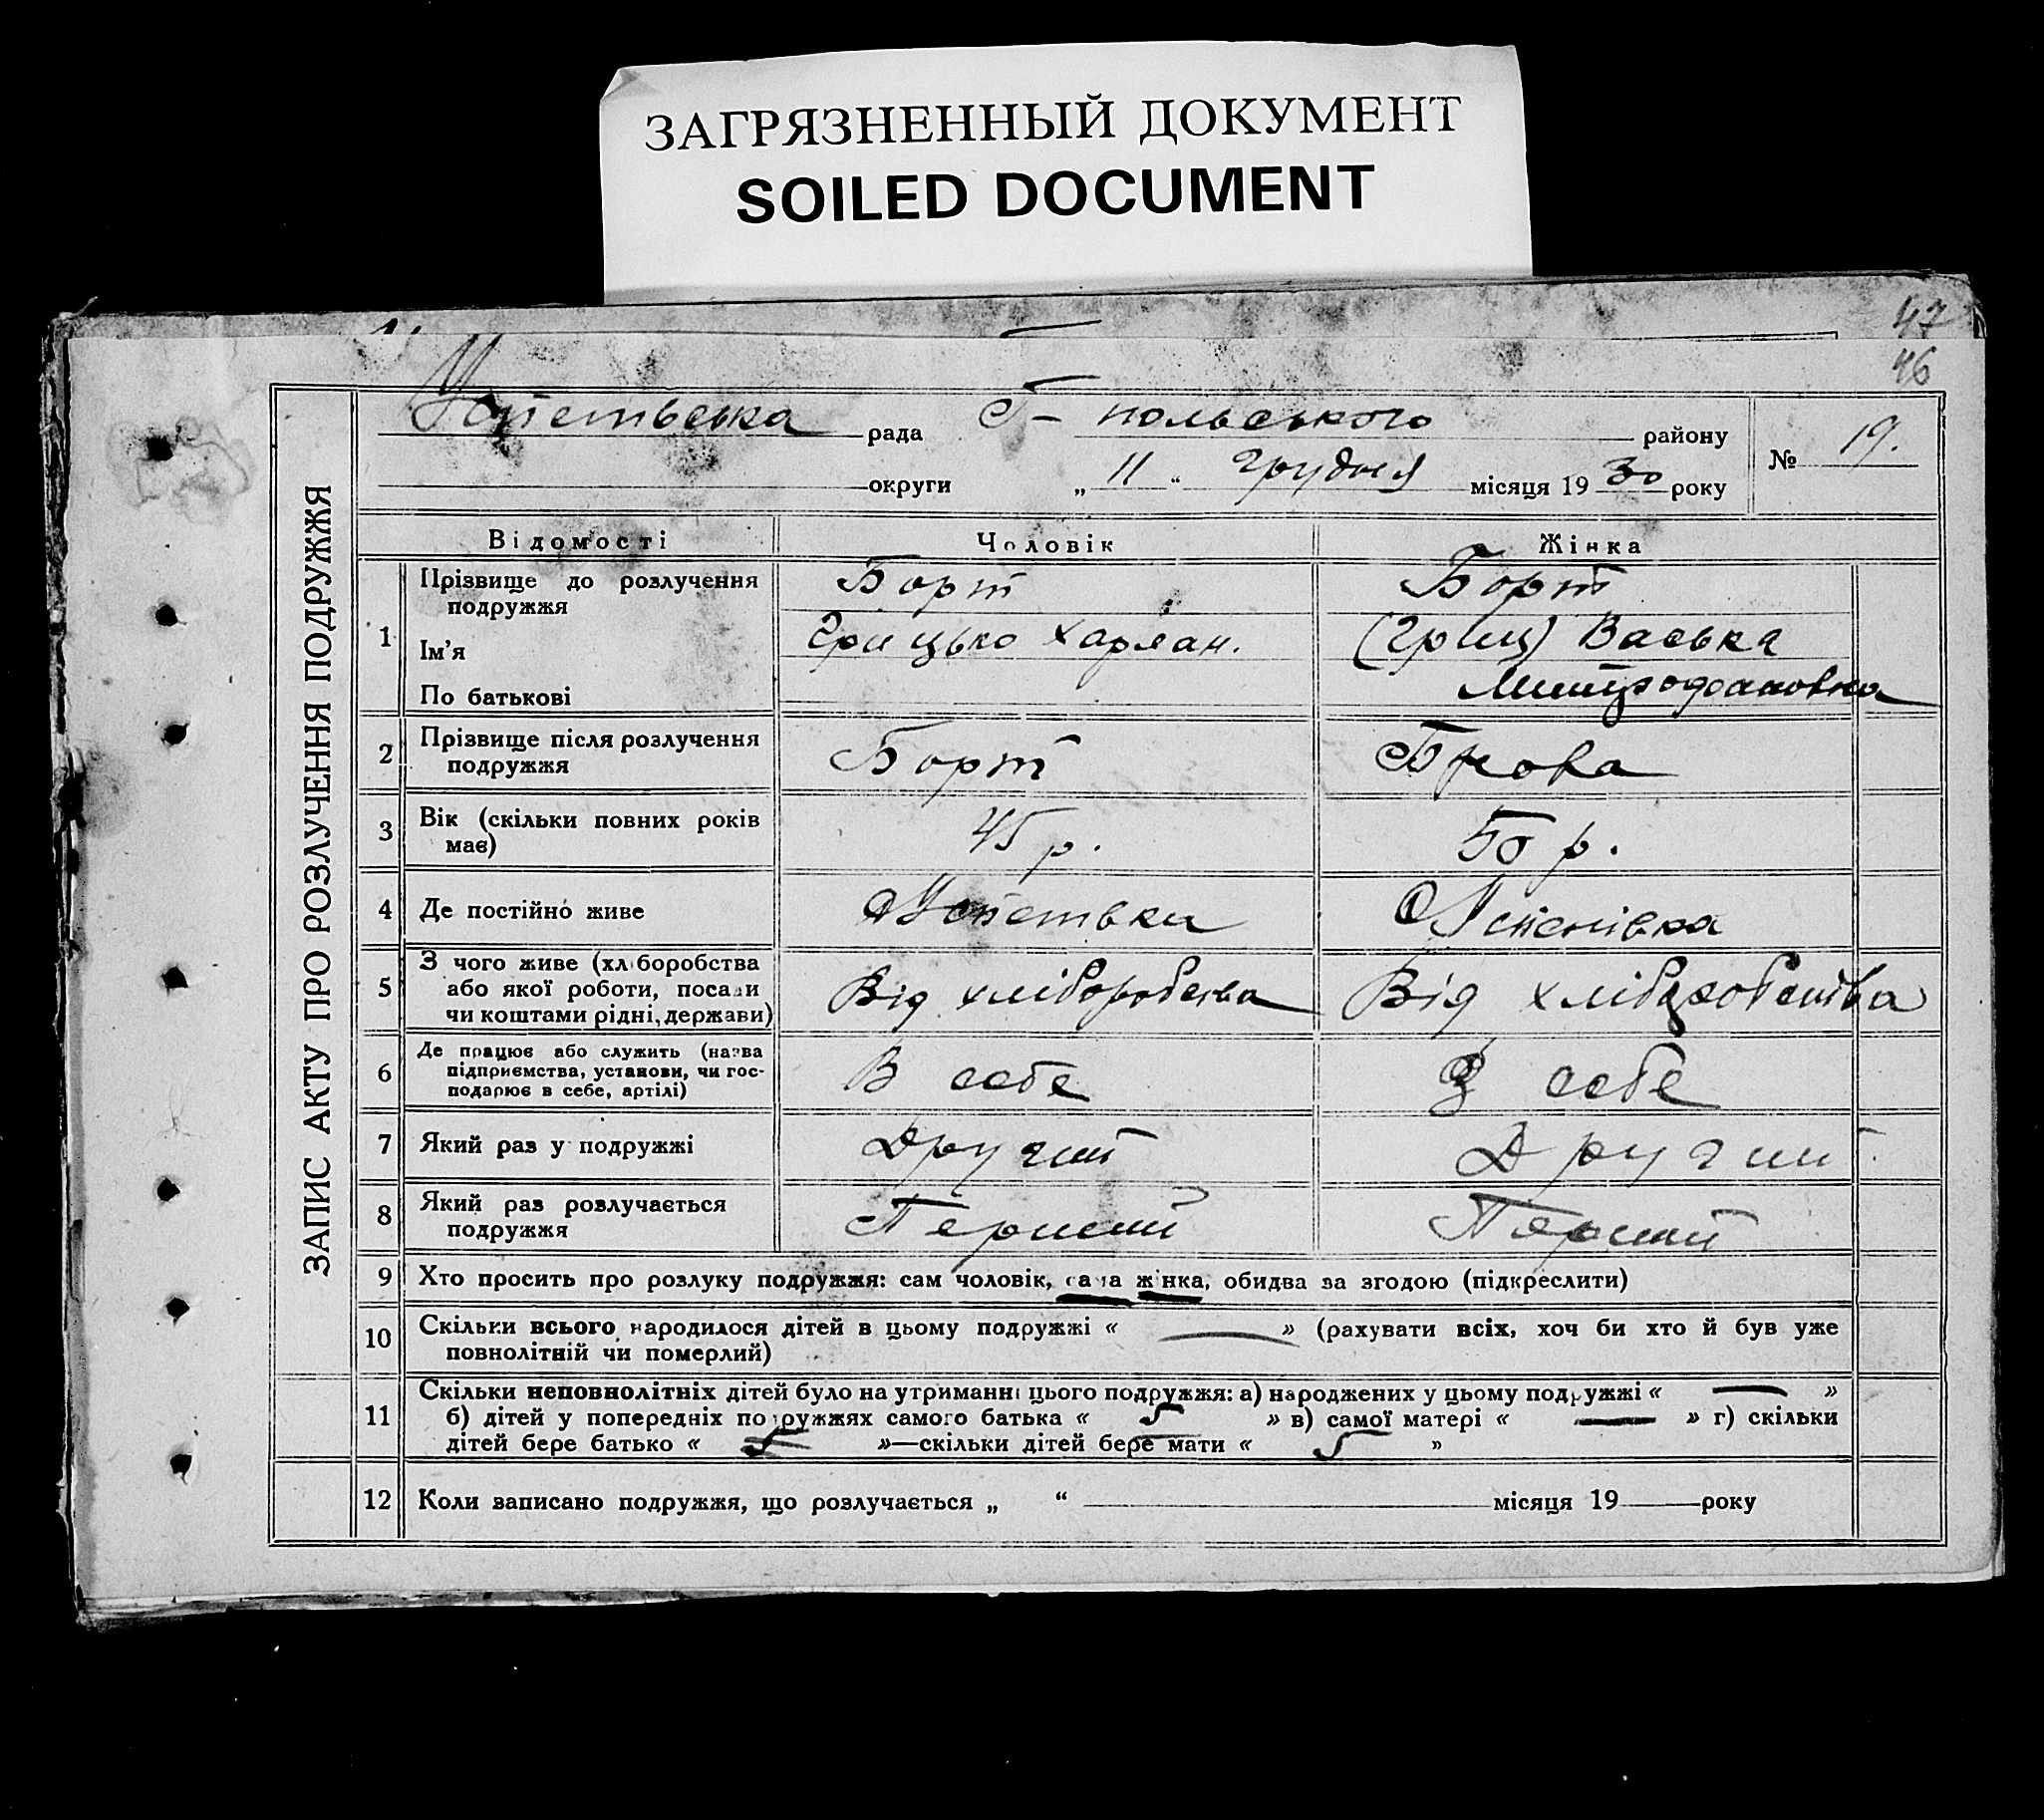 ЗАГРЯЗНЕННЫЙ ДОКУМЕНТ
SOILED DOCUMENT
47
46
ЗАПИС АКТУ ПРО РОЗЛУЧЕННЯ ПОДРУЖЖЯ
рада Г- польського району № 19.
округи „ 11 “ грудня місяця 19 30 року
Відомості Чоловік Жінка
1 Прізвище до розлучення подружжя Борт Борт
Ім'я Грицько Харлан. (Гриц) Васька
По батькові
2 Прізвище після розлучення
подружжя Борт
3 Вік (скільки повних років
має) 45 р. 50 р.
4 Де постійно живе
5 З чого живе (хліборобства
або якої роботи, посади
чи коштами рідні, держави) Від хліборобства Від хліборобства
6 Де працює або служить (назва
підприємства, установи, чи гос-
подарює в себе, артілі) В себе В себе
7 Який раз у подружжі Другий Другий
8 Який раз розлучається
подружжя Перший Перший
9 Хто просить про розлуку подружжя: сам чоловік, сама жінка, обидва за згодою (підкреслити)
10 Скільки всього народилося дітей в цьому подружжі « — » (рахувати всіх, хоч би хто й був уже
повнолітній чи померлий)
11 Скільки неповнолітніх дітей було на утриманні цього подружжя: а) народжених у цьому подружжі « — »
б) дітей у попередніх подружжях самого батька « 5 » в) самої матері « — » г) скільки
дітей бере батько « 5 »—скільки дітей бере мати « »
12 Коли записано подружжя, що розлучається „ “ місяця 19 року